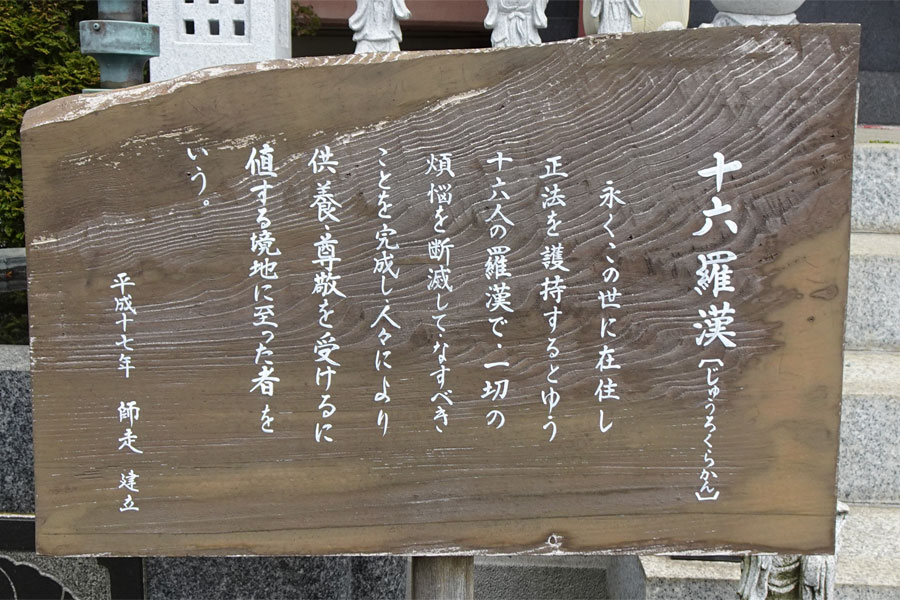 十六羅漢〔じゅうろくらかん〕
永くこの世に在住し
正法を護持するとゆう
十六人の羅漢で、一切の
煩悩を断滅してなすべき
ことを完成し、人々により
供養、尊敬を受けるに
値する境地に至った者を
いう。
平成十七年 師走 建立